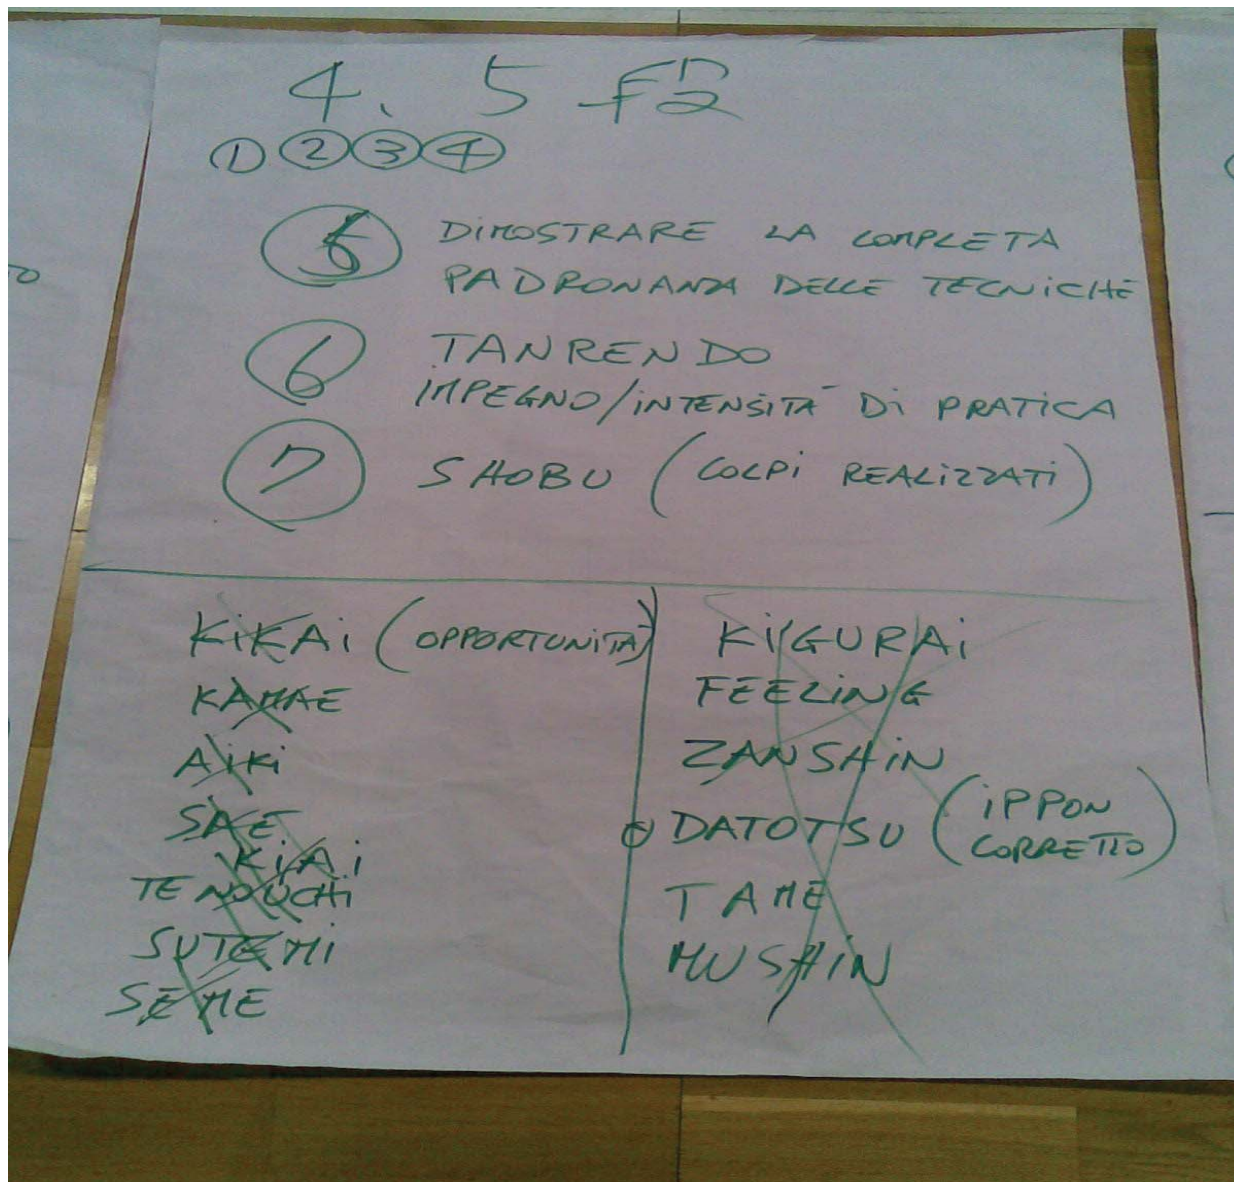 4. 5 段
① ② ③ ④
⑤ DIMOSTRARE LA COMPLETA
PADRONANZA DELLE TECNICHE
⑥ TANRENDO
IMPEGNO/INTENSITÀ DI PRATICA
⑦ SHOBU (COLPI REALIZZATI)
KIKAI (OPPORTUNITÀ)
KAMAE
AIKI
SAE
KIAI
TE NO UCHI
SUTEMI
SEME
KI/GURAI
FEELING
ZANSHIN
DATOTSU (IPPON
CORRETTO)
TAME
MUSHIN